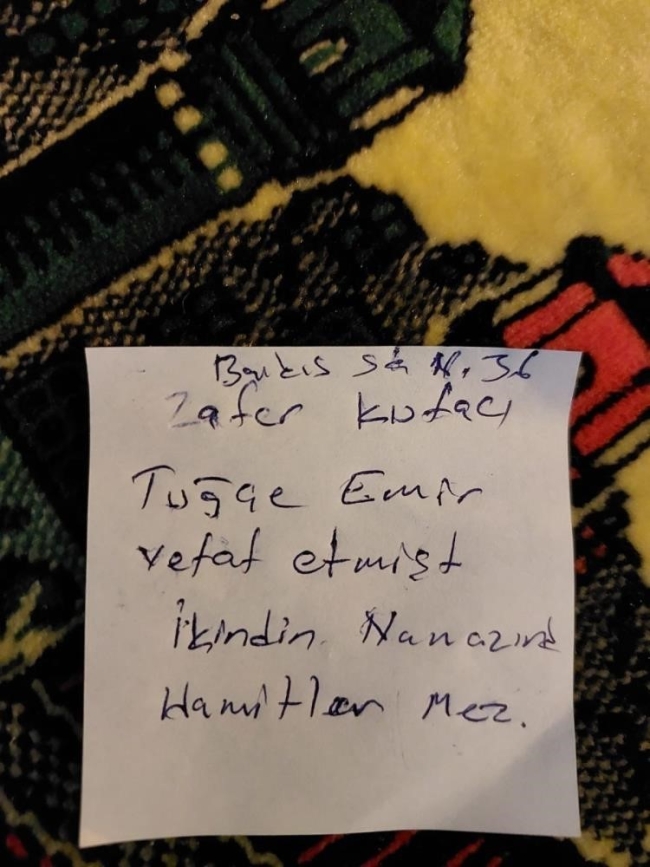 Barkıs Sk N. 36
Zafer kufacı
Tuğçe Emir
vefat etmişt
İkindin Namazınd
Hamitler Mez.